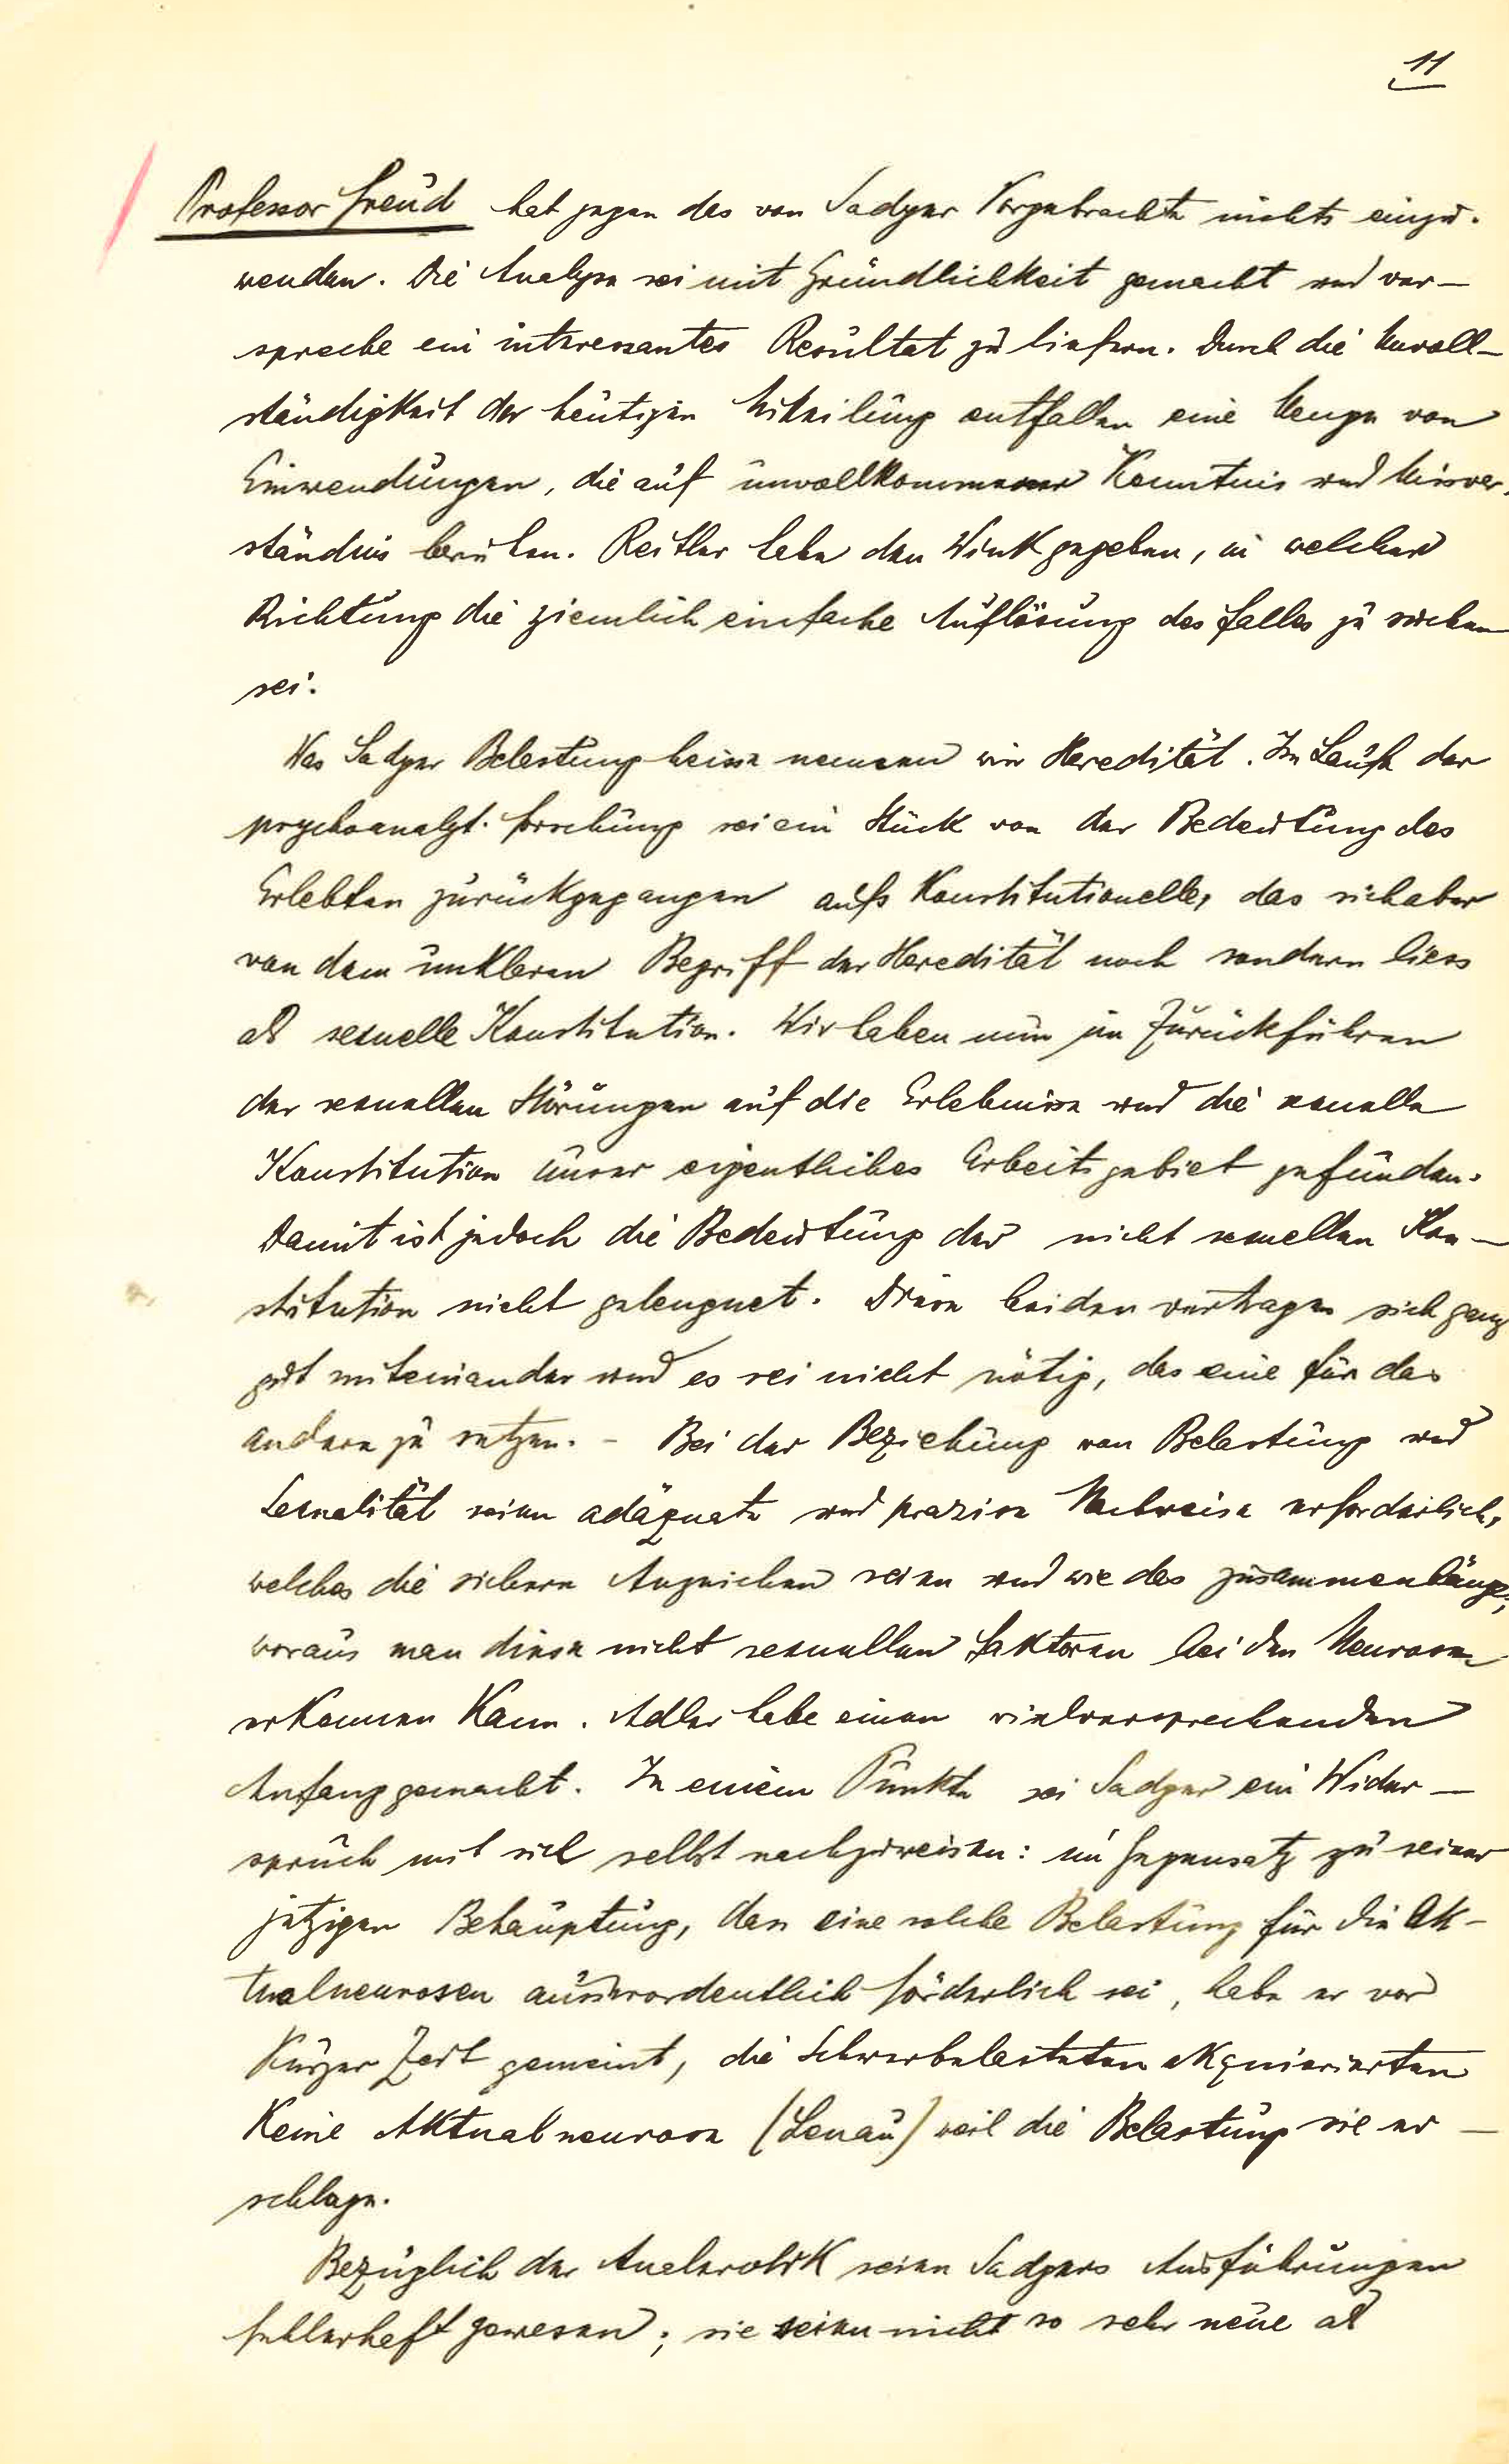 11
Professor Freud hat gegen das von Sadger Vorgebrachte nichts einzu-
wenden. Die Analyse sei mit Gründlichkeit gemacht und ver-
spreche ein interessantes Resultat zu liefern. Durch die Unvoll-
ständigkeit der heutigen Mitteilung entfallen eine Menge von
Einwendungen, die auf unvollkommener Kenntnis und Missver-
ständnis beruhen. Reitler habe den Wink gegeben, in welcher
Richtung die ziemlich einfache Auflösung des Falles zu suchen
sei.
Was Sadger Belastung heisse nennen wir Heredität. Im Laufe der
psychoanalyt. Forschung sei ein Stück von der Bedeutung des
Erlebten zurückgegangen aufs Konstitutionelle, das sich aber
von dem unklaren Begriff der Heredität noch sondern liess
als sexuelle Konstitution. Wir haben nun im Zurückführen
der sexuellen Störungen auf die Erlebnisse und die sexuelle
Konstitution unser eigentliches Arbeitsgebiet gefunden.
Damit ist jedoch die Bedeutung der nicht sexuellen Kon-
stitution nicht geleugnet. Diese beiden vertragen sich ganz
gut miteinander und es sei nicht nötig, das eine für das
andere zu setzen. - Bei der Beziehung von Belastung und
Sexualität seien adäquate und präzise Nachweise erforderlich,
welches die sichern Anzeichen seien und wie das zusammenhänge;
woraus man diese nicht sexuellen Faktoren bei den Neurosen
erkennen kann. Adler habe einen vielversprechenden
Anfang gemacht. In einem Punkte sei Sadger ein Wider-
spruch mit sich selbst nachzuweisen: im Gegensatz zu seiner
jetzigen Behauptung, dass eine solche Belastung für die Ak-
tualneurosen ausserordentlich förderlich sei, habe er vor
kurzer Zeit gemeint, die Schwerbelasteten akquirierten
keine Aktualneurose (Lenau) weil die Belastung sie er-
schlage.
Bezüglich der Analerotik seien Sadgers Ausführungen
fehlerhaft gewesen; sie seien nicht so sehr neue als